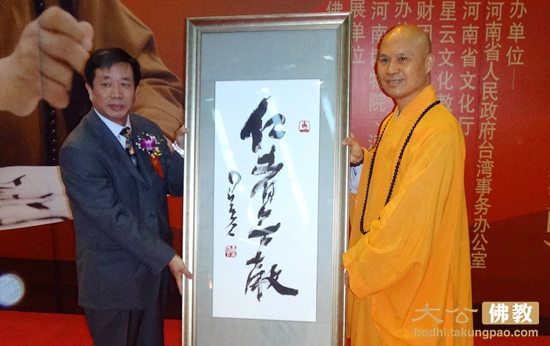 办单位——
河南省人民政府台湾事务办公室
河南省文化厅
星云文化教
财团
办
河南
院
展单位
佛
仁者無敵
星雲
大公佛教
bodhi.takungpao.com